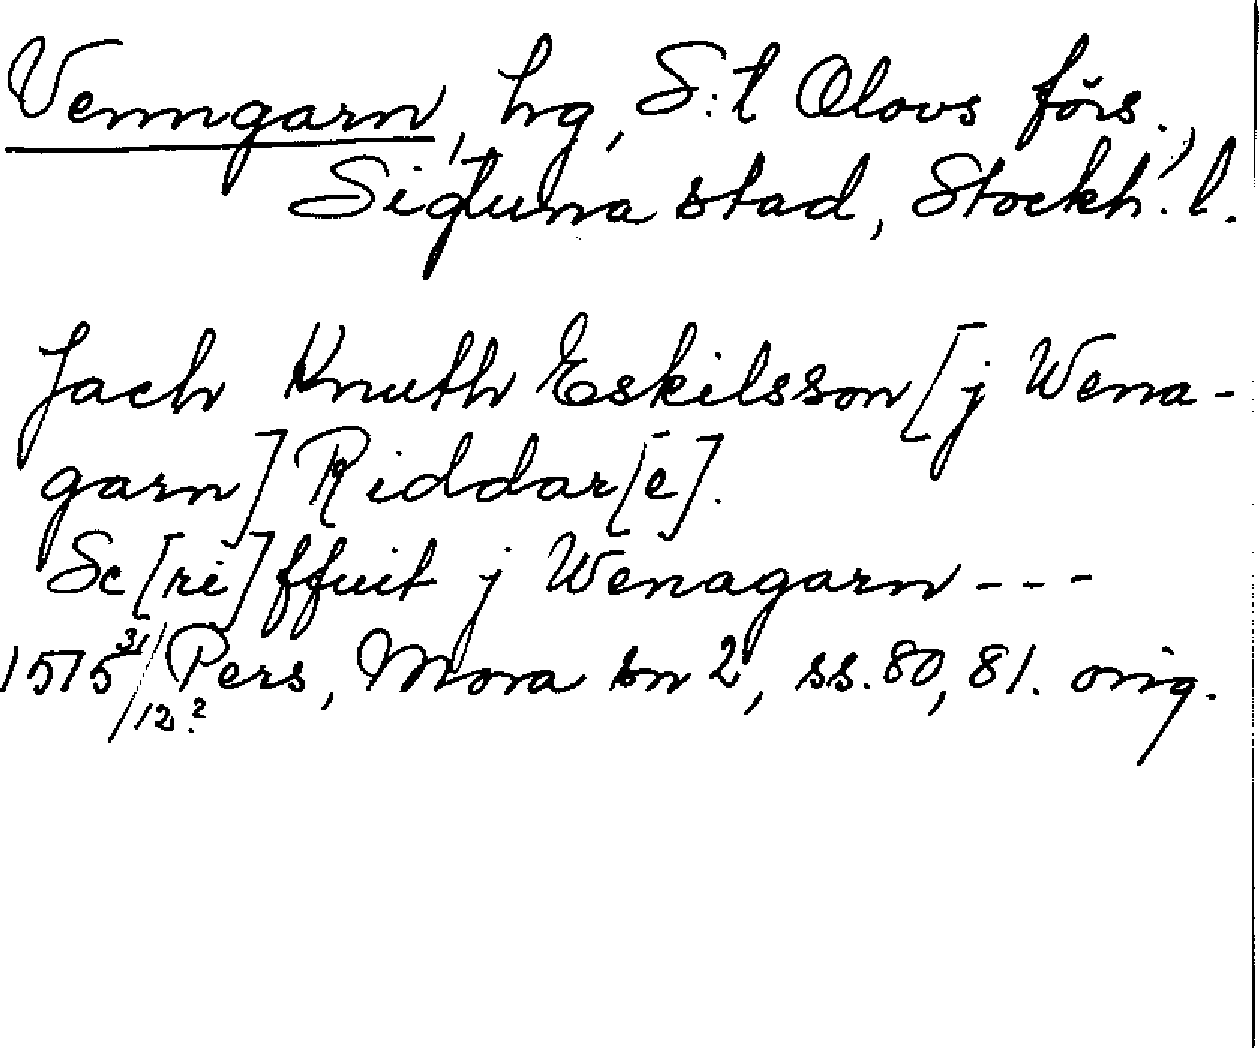 Venngarn, hg, S:t Olovs förs.,
Sigtuna stad, Stockh. l.
Jach Knuth Eskilsson [j Wena-
garn] Riddar[e].
Sc[ri]ffuit j Wenagarn - - -
1515 31/12.? Pers, Mora sn 2, ss. 80, 81. orig.